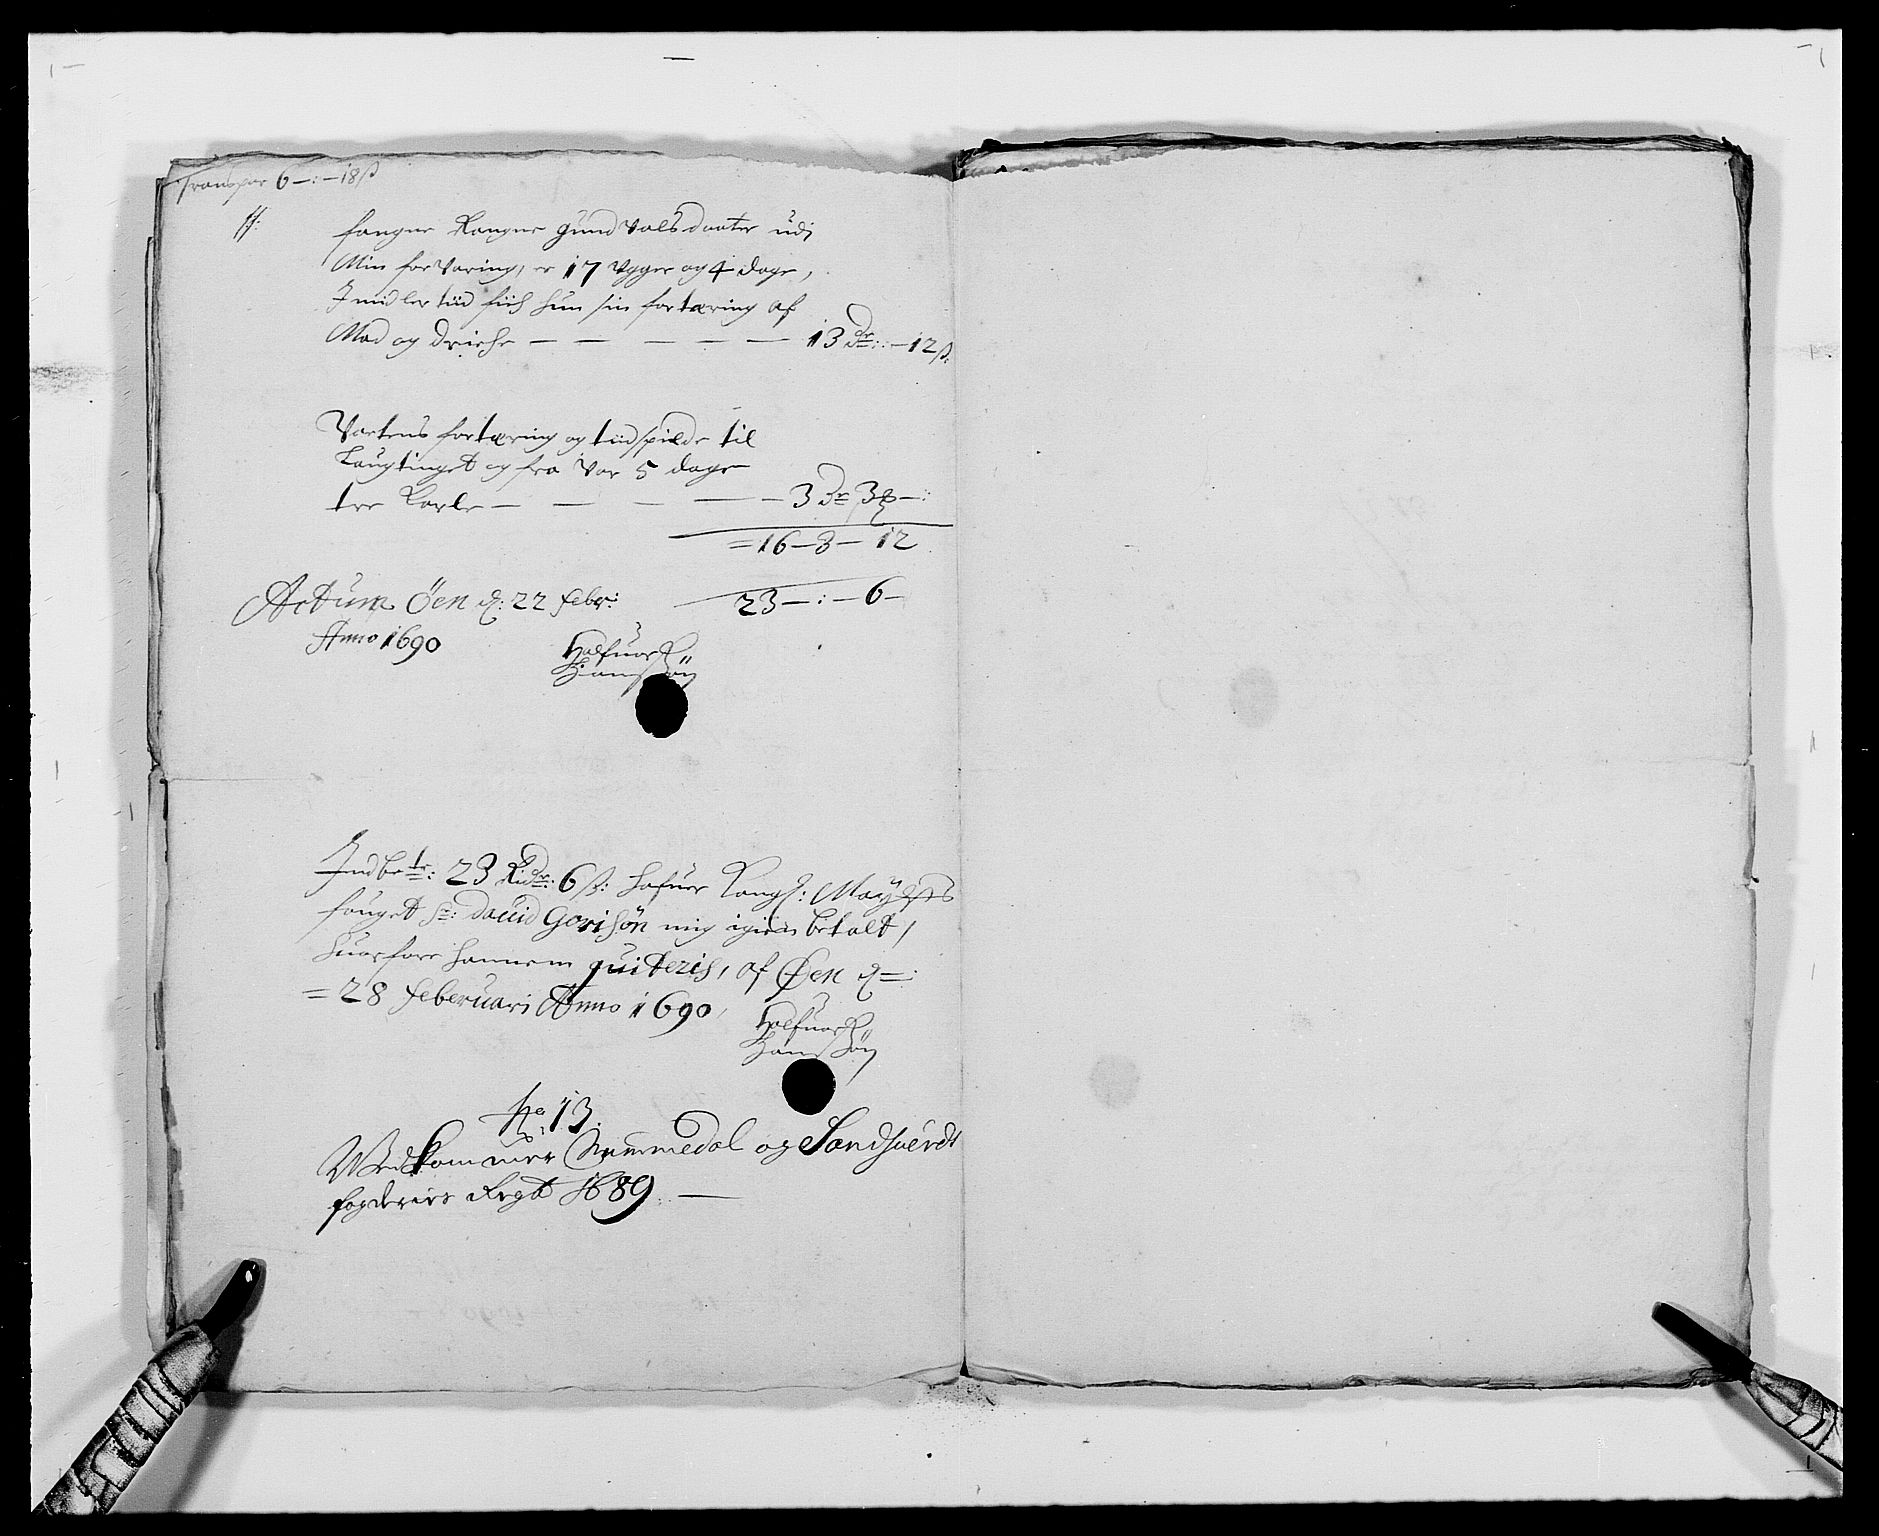 Transpor 6 — : — 18 ß
ff:
fangne Rangne Gundvolsdaater udj
Min forvaring, er 17 Vgger og 4 dage,
Imidlertiid fich hun sin fortæring af
Mad og driche — — — — — 13 Dr: — 12 ß:
Vartens fortæring og tiidspilde til
Laugtinget og fra var 5 dage
tre Karle — — — — — 3 Dr 3 ₰ — :
= 16 — 3 — 12
23 — : — 6 —
Actum Öen d: 22 febr:
Anno 1690
Halfuor
Hanssøn
Indbete: 23 Rdr: 6 ß: hafuer Kongl: Mayts
fouget Sr: Dauid Gorisøn mig igien betalt,
huorfore hannem quiteris, af Øen d =:
= 28 Februari Anno 1690,
Halfuor
Hanssøn
No 13:
Wedkommer Nummedal og Sandsuerdt
fogderies Regsk 1689. —